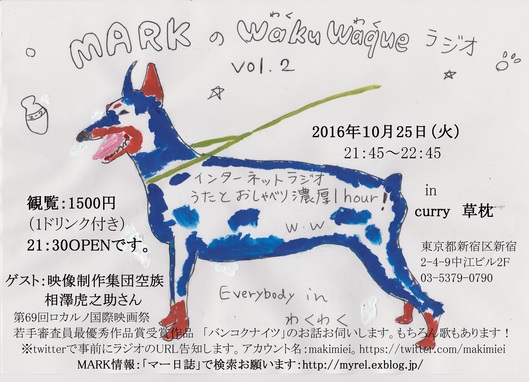 MARKのWaku Waqueラジオ
わく わく
vol.2
2016年10月25日(火)
21:45~22:45
インターネットラジオ
うたとおしゃべり濃厚1hour!
W.W
観覧:1500円
(1ドリンク付き)
21:30OPENです。
in
curry 草枕
東京都新宿区新宿
2-4-9中江ビル2F
03-5379-0790
Everybody in
わくわく
ゲスト:映像制作集団空族
相澤虎之助さん
第69回ロカルノ国際映画祭
若手審査員最優秀作品賞受賞作品 「バンコクナイツ」のお話お伺いします。もちろん歌もあります!
※twitterで事前にラジオのURL告知します。アカウント名:makimiei。https://twitter.com/makimiei
MARK情報:「マー日誌」で検索お願います:http://myrel.exblog.jp/